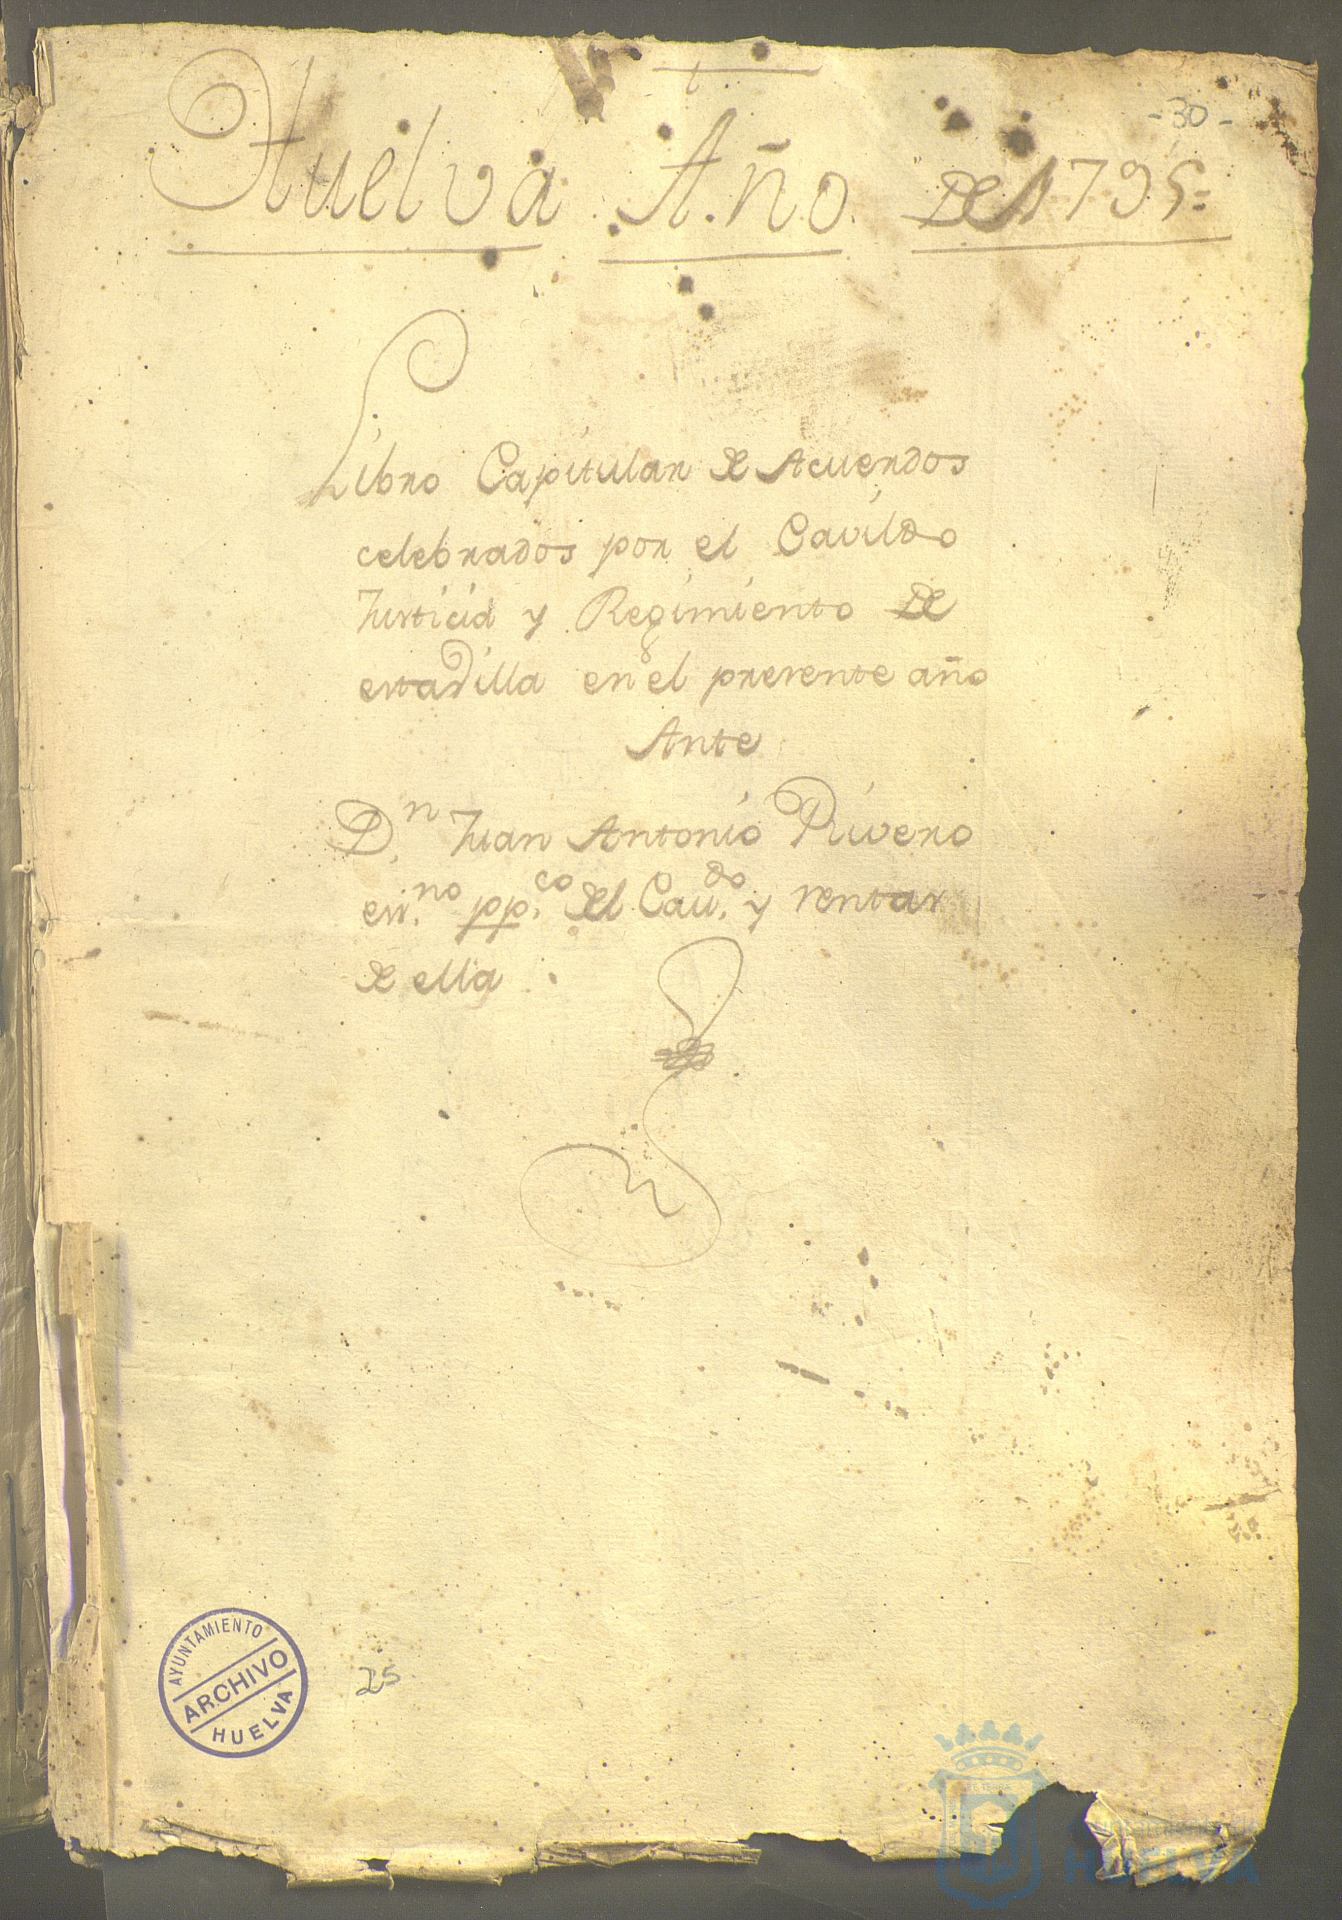 -30-
Huelva Año de 1795=
Libro Capitular de Acuerdos
celebrados por el Cavildo
Justicia y Regimiento de
esta Villa en el presente año
Ante
D.n Juan Antonio Rivero
es.no pp.co del Cav.do y rentas
de ella
AYUNTAMIENTO
ARCHIVO
HUELVA
25
HUELVA